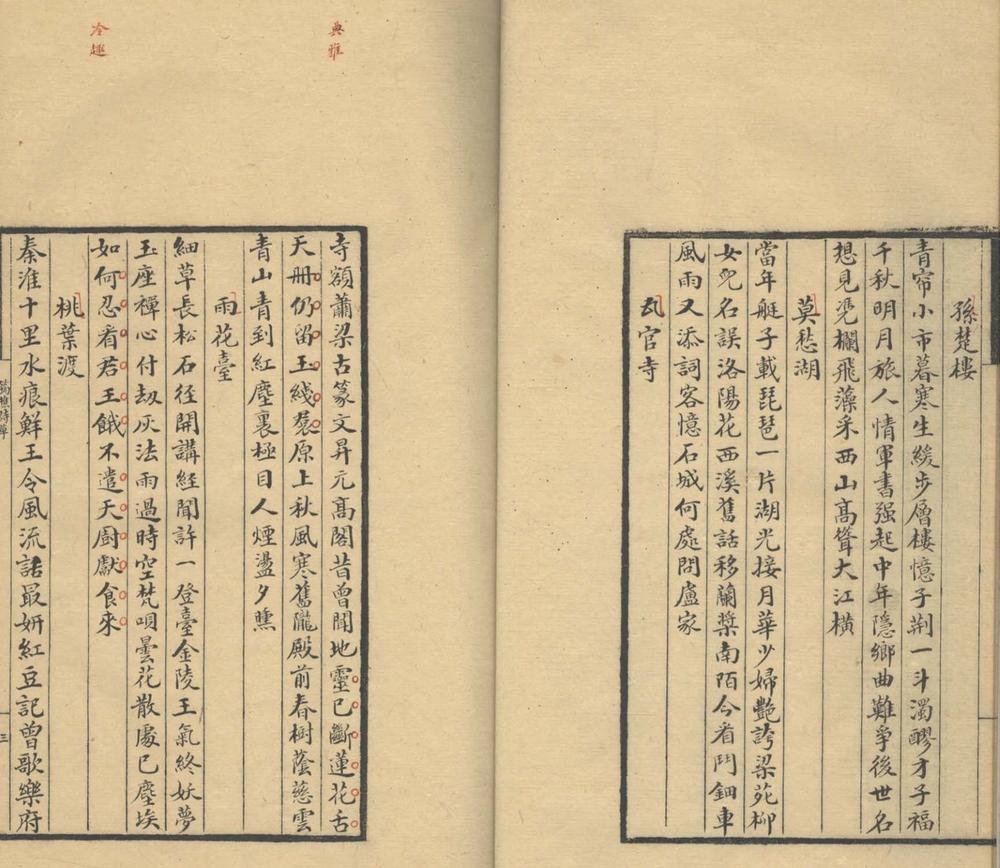 孫楚樓
青帘小市暮寒生緩步層樓憶子荆一斗濁醪才子福
千秋明月旅人情軍書强起中年隱鄉曲難爭後世名
想見凭欄飛藻采西山高聳大江橫
莫愁湖
當年艇子載琵琶一片湖光接月華少婦艶誇梁苑柳
女兒名誤洛陽花西溪舊話移蘭槳南陌今看鬥鈿車
風雨又添詞客憶石城何處問盧家
瓦官寺
典雅
寺額蕭梁古篆文昇元高閣昔曾聞地靈已斷蓮花舌
天冊仍留玉綫裙原上秋風寒舊隴殿前春樹蔭慈雲
青山青到紅塵裏極目人煙盪夕曛
雨花臺
細草長松石徑開講經聞許一登臺金陵王氣終妖夢
玉座禪心付劫灰法雨過時空梵唄曇花散處已塵埃
冷趣
如何忍看君王餓不遣天厨獻食來
桃葉渡
秦淮十里水痕鮮王令風流話最妍紅豆記曾歌樂府
三